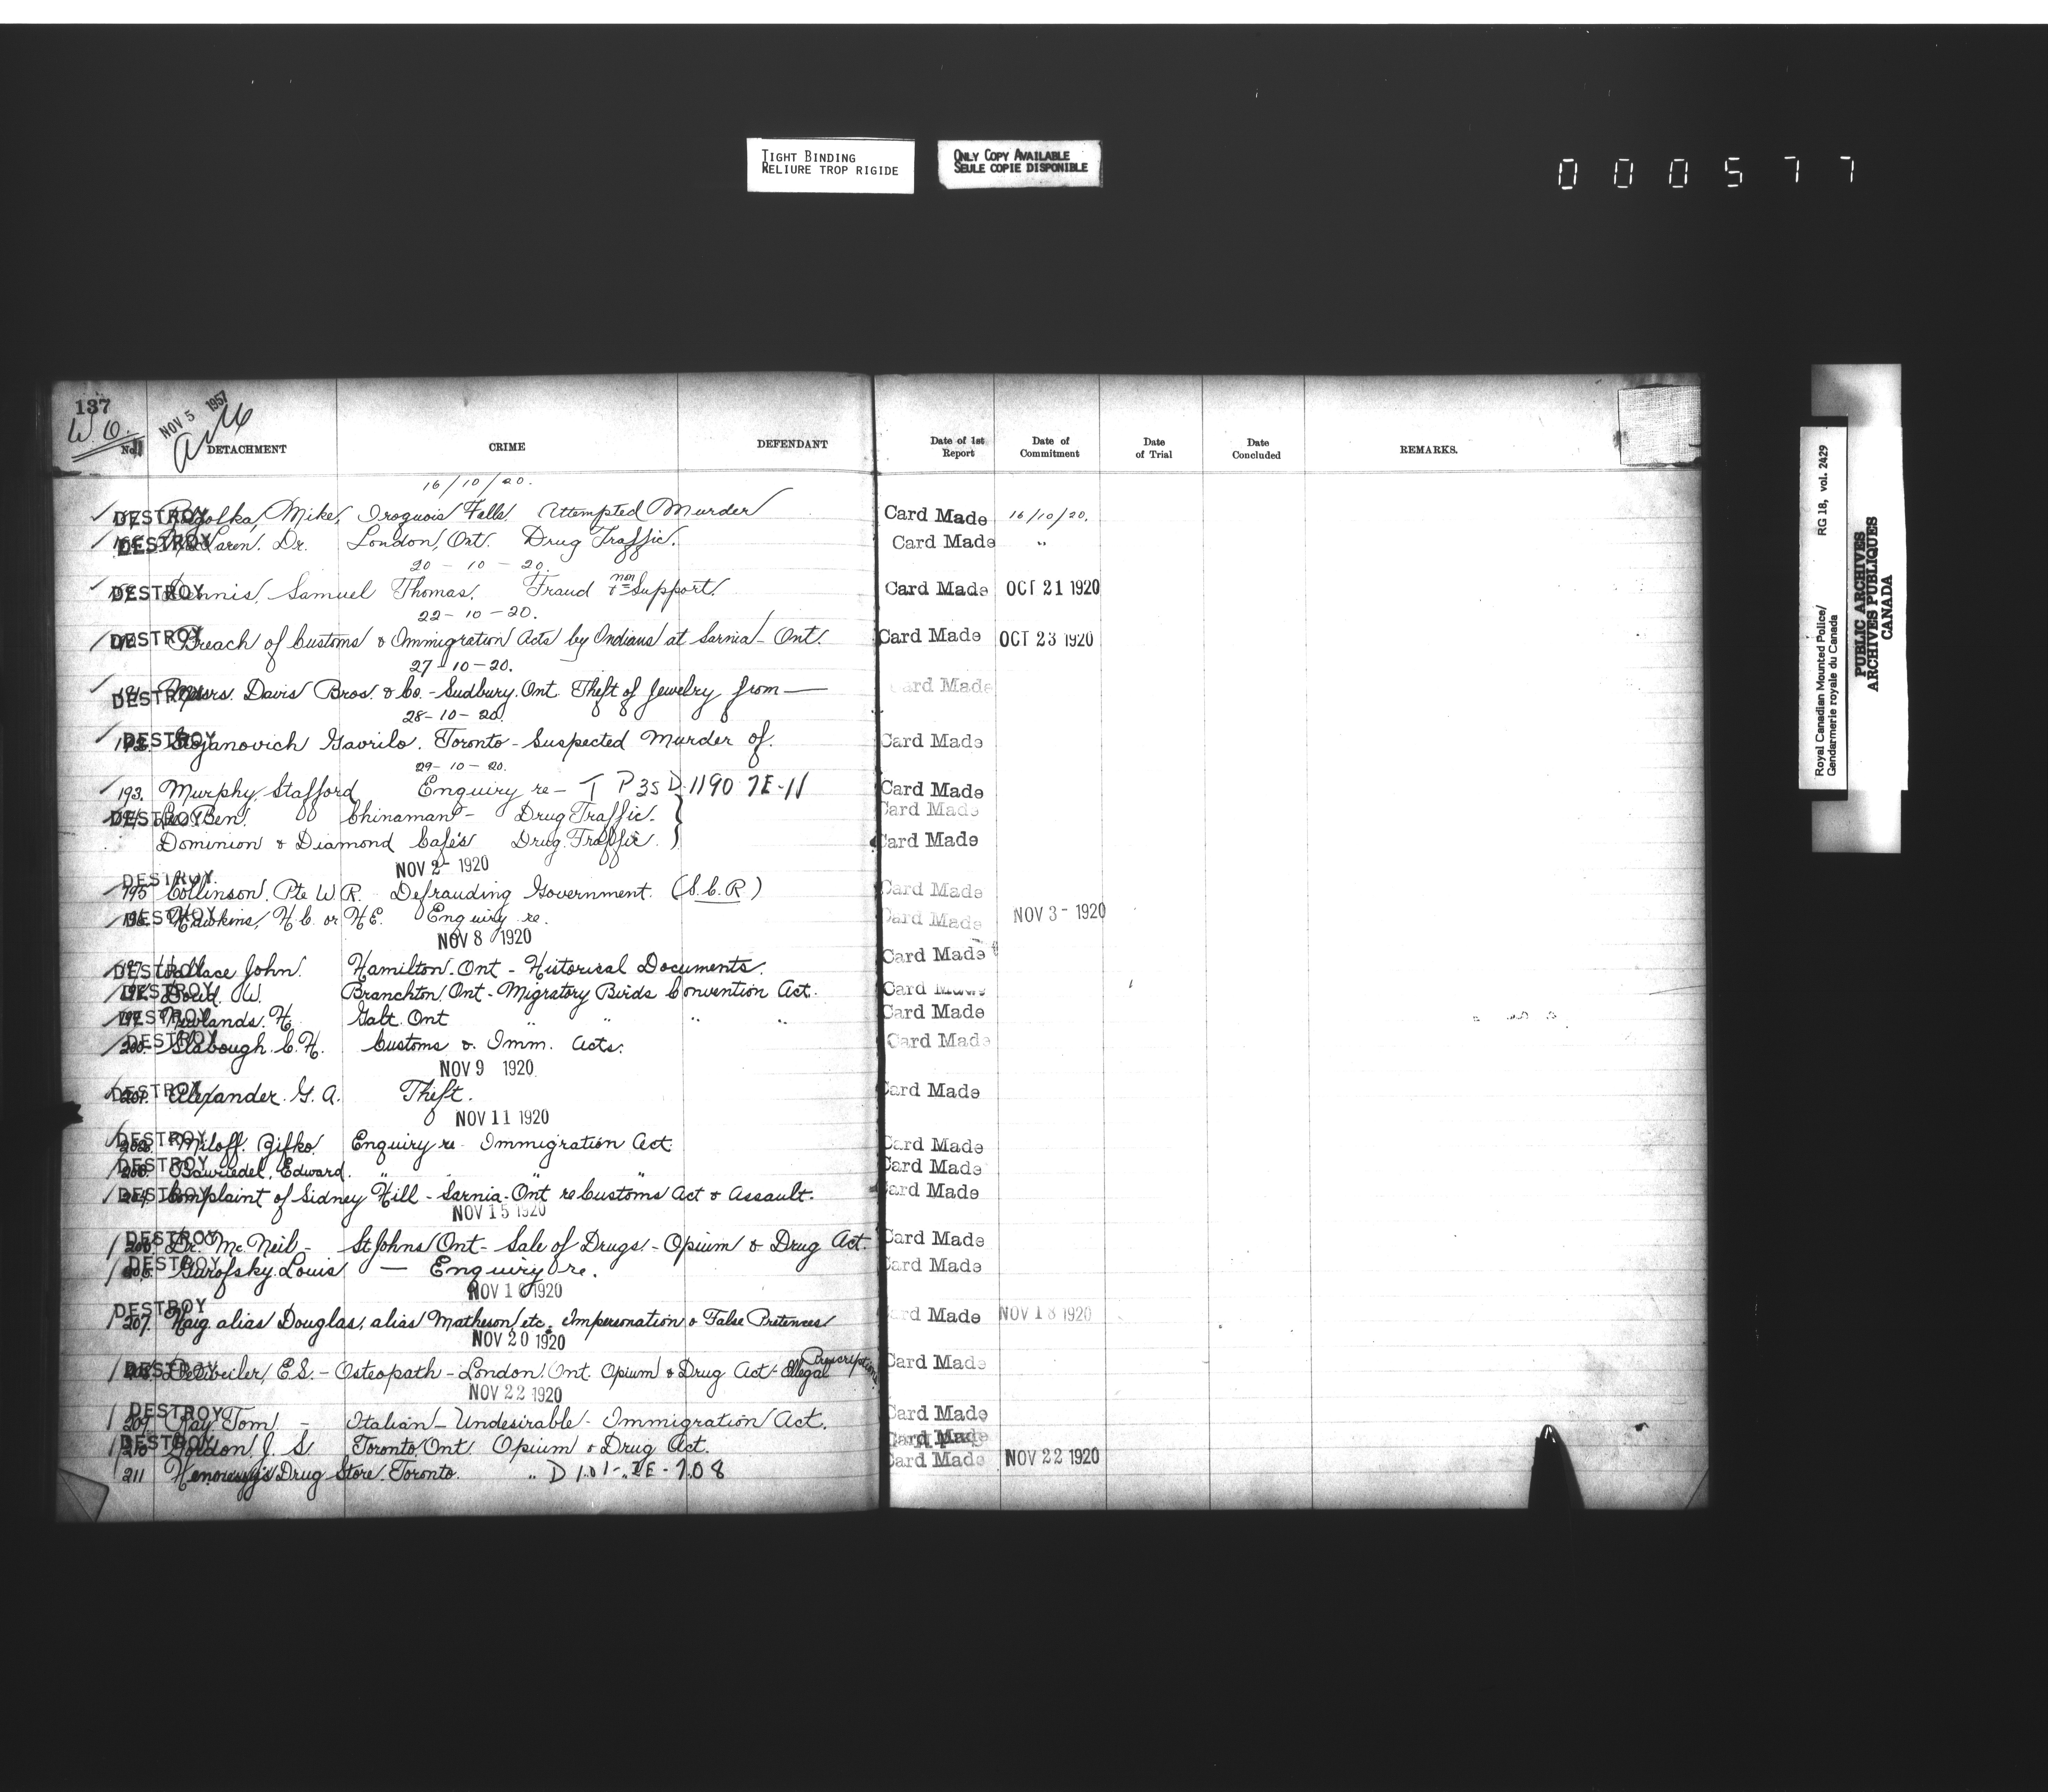 TIGHT BINDING
RELIURE TROP RIGIDE
ONLY COPY AVAILABLE
SEULE COPIE DISPONIBLE
000577
137
W O.
NOV 5 1957
No.
DETACHMENT
CRIME
DEFENDANT
Date of 1st Report
Date of Commitment
Date of Trial
Date Concluded
REMARKS.
16/10/20.
DESTROY Mike, Iroquois Falls. Attempted Murder Card Made 16/10/20.
DESTROY Dr. London, Ont. Drug Traffic. Card Made "
20-10-20.
DESTROY Dennis, Samuel Thomas. Fraud & non Support. Card Made OCT 21 1920
22-10-20.
DESTROY Breach of Customs & Immigration Acts by Indians at Sarnia - Ont. Card Made OCT 23 1920
27-10-20.
DESTROY Davis Bros. & Co. - Sudbury. Ont. Theft of Jewelry from — Card Made
28-10-20.
DESTROY 192. Stojanovich Gavrilo. Toronto - Suspected Murder of. Card Made
29-10-20.
193. Murphy, Stafford Enquiry re - T P 35 D. 1190 7E-11 Card Made
DESTROY Ben. Chinaman - Drug Traffic. Card Made
Dominion & Diamond Cafés Drug Traffic. Card Made
NOV 2 - 1920
DESTROY.
195 Collinson. Pte W.R. Defrauding Government. (S.C.R) Card Made
DESTROY 196. Hawkins, H.C. or H.E. Enquiry re. Card Made NOV 3 - 1920
NOV 8 1920
DESTROY 197. Wallace John. Hamilton. Ont - Historical Documents. Card Made
DESTROY 198. W. Branchton, Ont - Migratory Birds Convention Act. Card Made
DESTROY 199. Newlands. H. Galt. Ont " " " " Card Made
DESTROY 200. Slabough. C.H. Customs & Imm. Acts. Card Made
NOV 9 1920
DESTROY 201. Alexander. G. A. Theft. Card Made
NOV 11 1920
DESTROY 202. Miloff. Enquiry re Immigration Act. Card Made
DESTROY 203. Edward. " " " Card Made
DESTROY 204. Complaint of Sidney Hill - Sarnia - Ont re Customs Act & Assault. Card Made
NOV 15 1920
DESTROY 205. Dr. McNeil - St Johns Ont - Sale of Drugs - Opium & Drug Act. Card Made
DESTROY 206. Garofsky. Louis — Enquiry re. Card Made
NOV 1 1920
DESTROY
207. Haig alias Douglas, alias Matheson etc. Impersonation & False Pretences Card Made NOV 18 1920
NOV 20 1920
DESTROY 208. Detweiler, E.S. - Osteopath - London. Ont. Opium & Drug Act - Illegal Prescriptions. Card Made
NOV 22 1920
DESTROY
209. Ray Tom - Italian - Undesirable - Immigration Act. Card Made
DESTROY 210 Gordon, J. S. Toronto, Ont Opium & Drug Act. Card Made
211 Drug Store. Toronto. " D 101-7E-708 Card Made NOV 22 1920
Royal Canadian Mounted Police/
Gendarmerie royale du Canada
RG 18, vol. 2429
PUBLIC ARCHIVES
ARCHIVES PUBLIQUES
CANADA